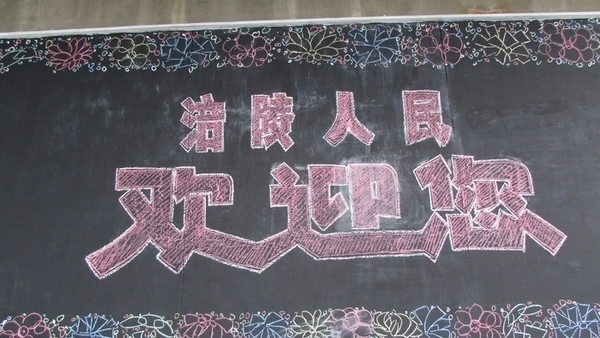 涪陵人民
欢迎您